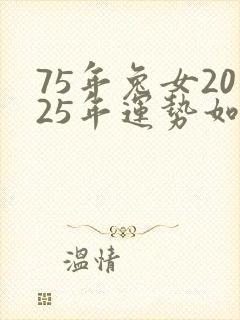 75年兔女20
25年運勢如
溫情